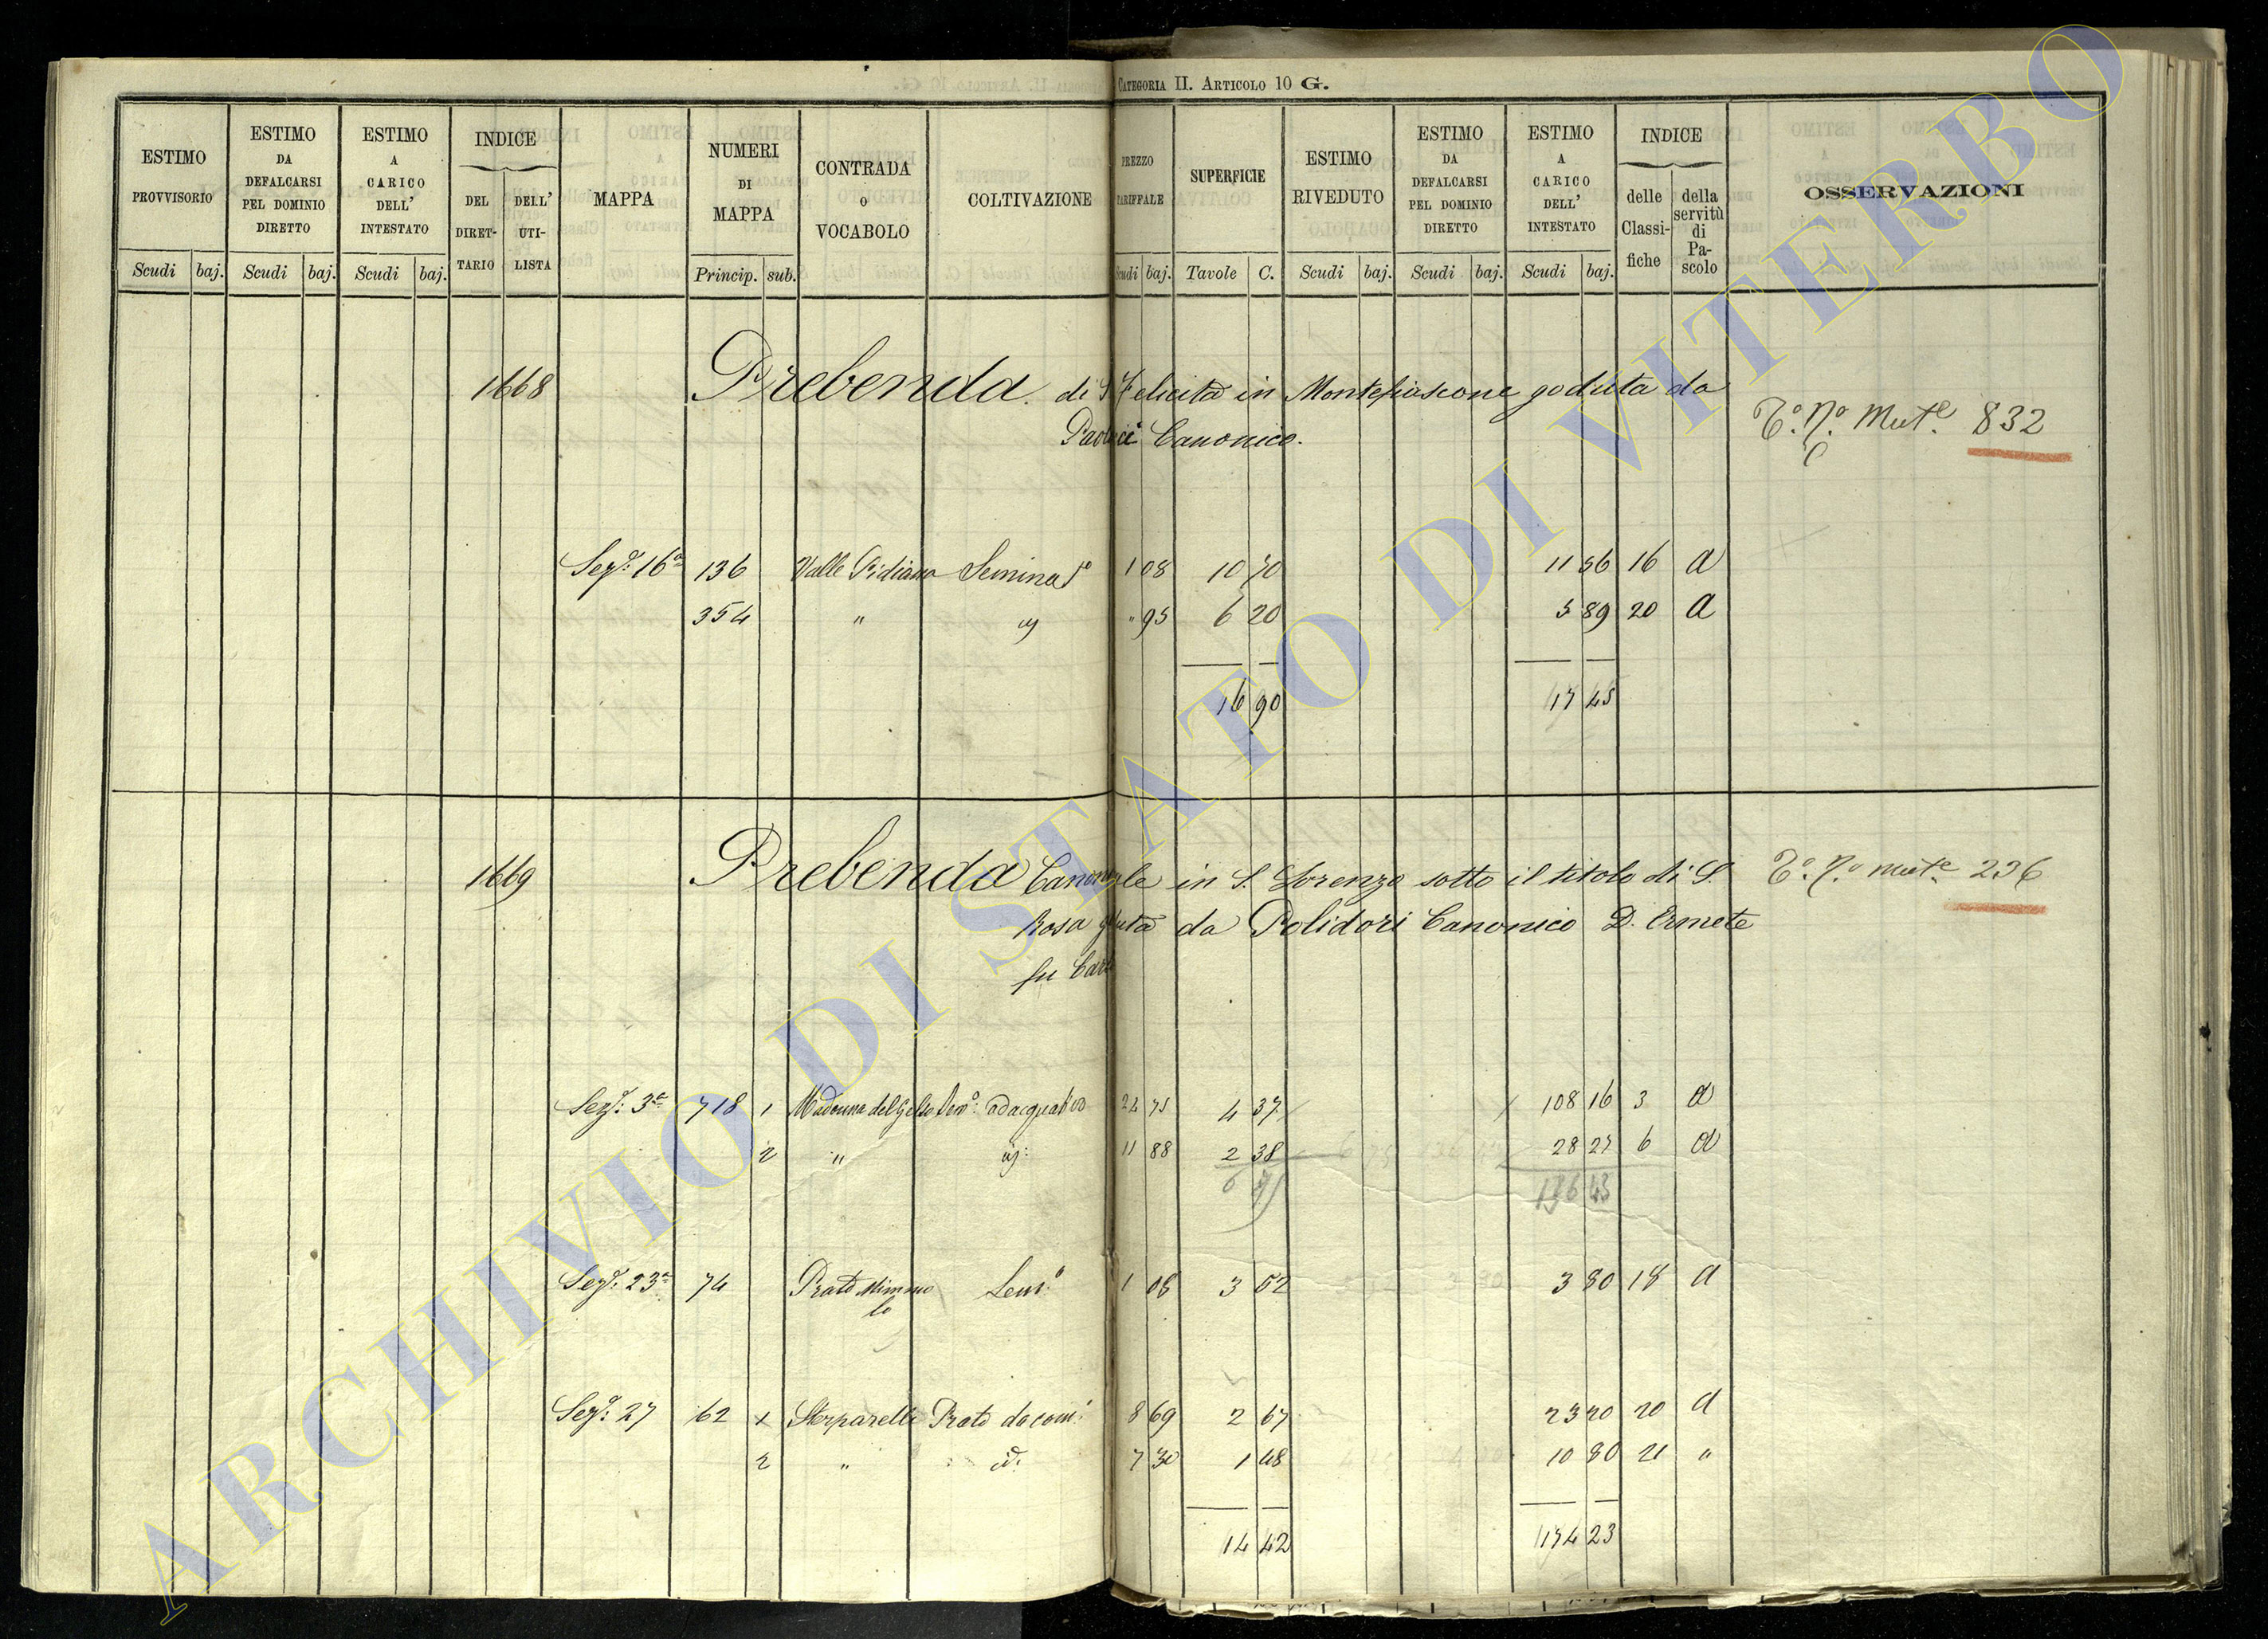 CATEGORIA II. ARTICOLO 10 G.
ESTIMO PROVVISORIO
ESTIMO DA DEFALCARSI PEL DOMINIO DIRETTO
ESTIMO A CARICO DELL' INTESTATO
INDICE
DEL DIRETTARIO
DELL' UTILISTA
MAPPA
NUMERI DI MAPPA
CONTRADA O VOCABOLO
COLTIVAZIONE
PREZZO TARIFFALE
SUPERFICIE
ESTIMO RIVEDUTO
ESTIMO DA DEFALCARSI PEL DOMINIO DIRETTO
ESTIMO A CARICO DELL' INTESTATO
INDICE
delle Classifiche
della servitù di Pascolo
OSSERVAZIONI
Scudi baj. Scudi baj. Scudi baj. Princip. sub. Scudi baj. Tavole C. Scudi baj. Scudi baj. Scudi baj.
1668 Prebenda di S. Felicita in Montefiascone goduta da
Canonico.
T.o N.o Mut.e 832
Sez.e 16a 136 Valle Seminat.o 1 08 10 70 11 56 16 a
354 " " 95 6 20 5 89 20 a
16 90 17 45
1669 Prebenda Canonicale in S. Lorenzo sotto il titolo di S.
T.o N.o mut.e 236
Rosa goduta da Polidori Canonico D. Ermete
fu
Sez.e 3a 718 1 Madonna del Gelso Sem.o adacquativo 24 75 4 37 108 16 3 a
2 " 11 88 2 38 28 27 6 a
6 75 136 43
Sez.e 23a 74 Prato Mimmo Sem.o 1 08 3 52 3 80 18 a
lo
Sez.e 27 62 1 Sterparelle Prato 8 69 2 67 23 20 20 a
2 " id. 7 30 1 48 10 80 21 "
14 42 174 23
ARCHIVIO DI STATO DI VITERBO